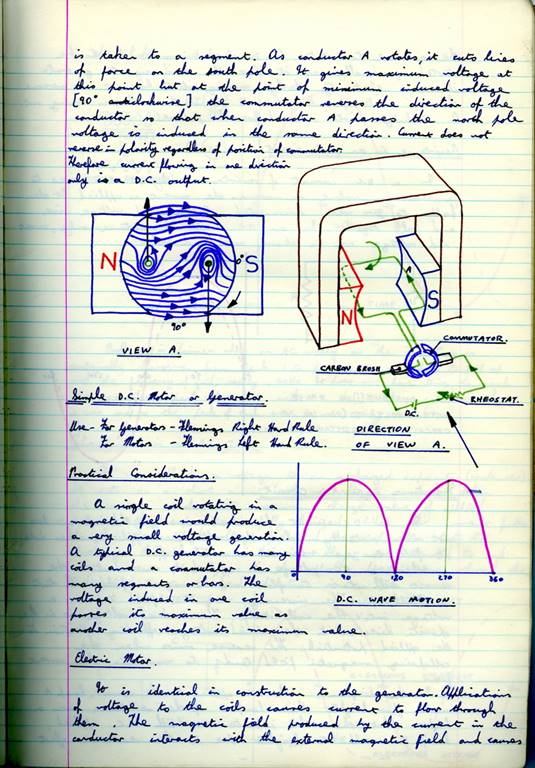 is taken to a segment. As conductor A rotates, it cuts lines
of force on the south pole. It gives maximum voltage at
this point but at the point of minimum induced voltage
[90° anticlockwise] the commutator reverses the direction of the
conductor so that when conductor A passes the north pole
voltage is induced in the same direction. Current does not
reverse in polarity regardless of position of commutator.
Therefore current flowing in one direction
only is a D.C. output.
N
S
0°
90°
VIEW A.
A
N
S
COMMUTATOR.
CARBON BRUSH
RHEOSTAT.
D.C.
DIRECTION
OF VIEW A.
Simple D.C. Motor or Generator.
Use - For Generators - Flemings Right Hand Rule
For Motors - Flemings Left Hand Rule.
Practical Considerations.
A single coil rotating in a
magnetic field would produce
a very small voltage generation.
A typical D.C. generator has many
coils and a commutator has
many segments or bars. The
voltage induced in one coil
passes its maximum value as
another coil reaches its maximum value.
0 90 180 270 360
D.C. WAVE MOTION.
Electric Motor.
It is identical in construction to the generator. Applications
of voltage to the coils causes current to flow through
them. The magnetic field produced by the current in the
conductor interacts with the external magnetic field and causes